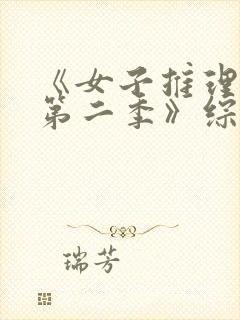 《女子推理
第二季》综
瑞芳